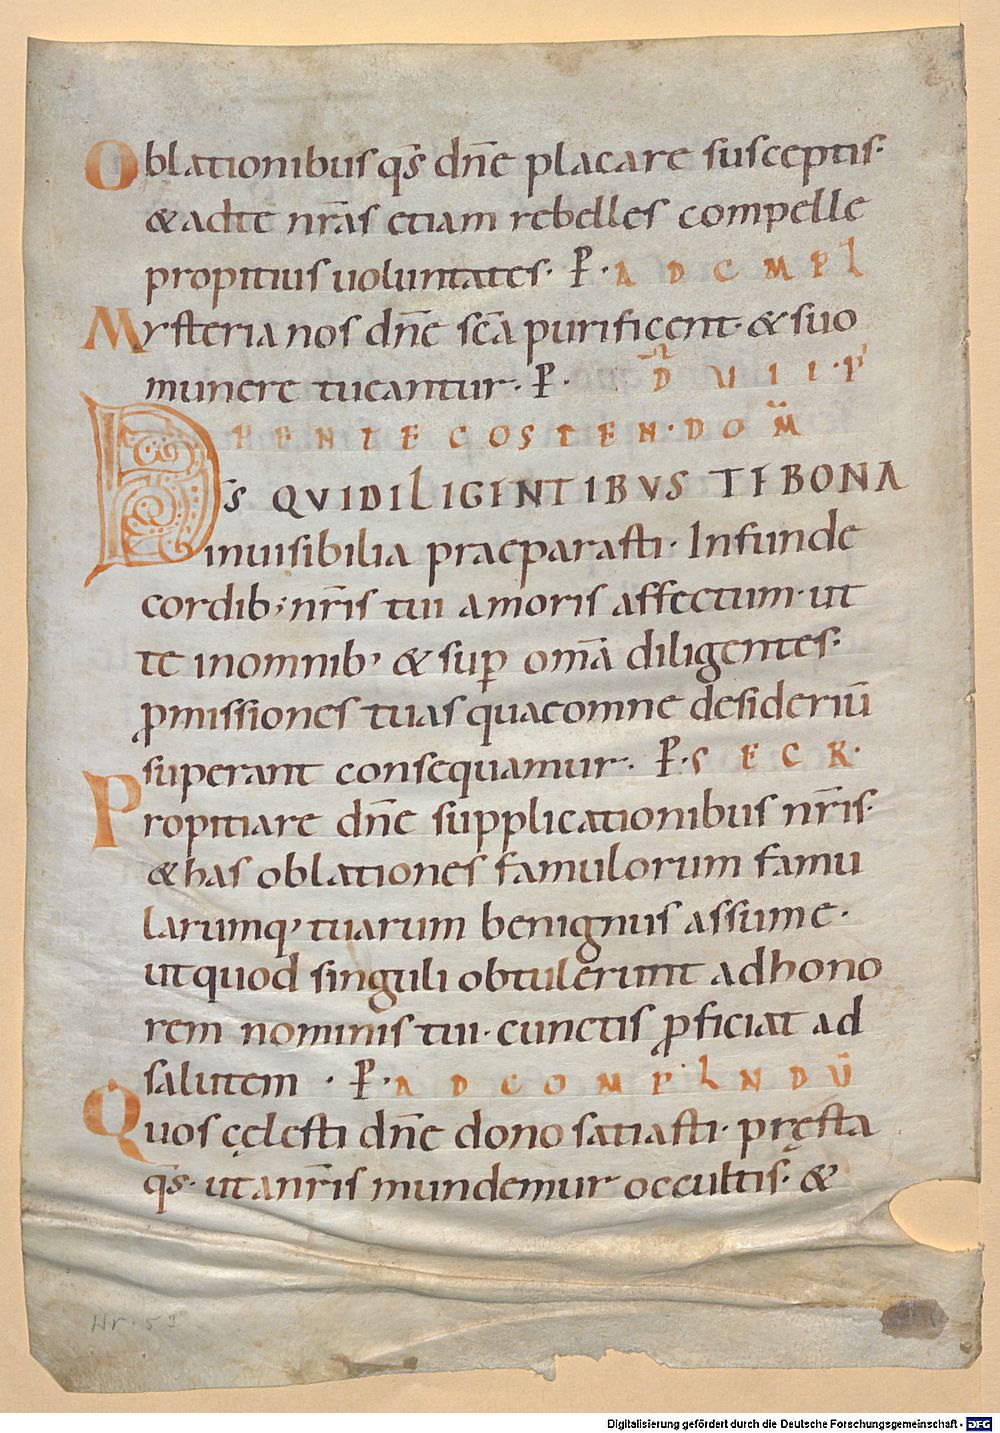 Oblationibus qs̄ dn̄e placare susceptis·
& adte nr̄as etiam rebelles compelle
propitius uoluntates· P̄· A D C M P L
Mysteria nos dn̄e sc̄a purificent· & suo
munere tueantur· P̄· D̄ VIII· P
PENTECOSTEN· DOM̄
Ds̄ QVI DILIGENTIBVS TE BONA
inuisibilia praeparasti· Infunde
cordib; nr̄is tui amoris affectum· ut
te inomnib; & sup̱ om̄a diligentes·
ꝓmissiones tuas quae omne desideriū
superant consequamur· P̄· S E C R·
Propitiare dn̄e supplicationibus nr̄is·
& has oblationes famulorum famu
larumq; tuarum benignus assume·
ut quod singuli obtulerunt ad hono
rem nominis tui· cunctis ꝓficiat ad
salutem · P̄· A D C O M P L N D Ū
Quos cęlesti dn̄e dono satiasti· pręsta
qs̄· ut a nr̄is mundemur occultis· &
Nr. 53
Digitalisierung gefördert durch die Deutsche Forschungsgemeinschaft - DFG